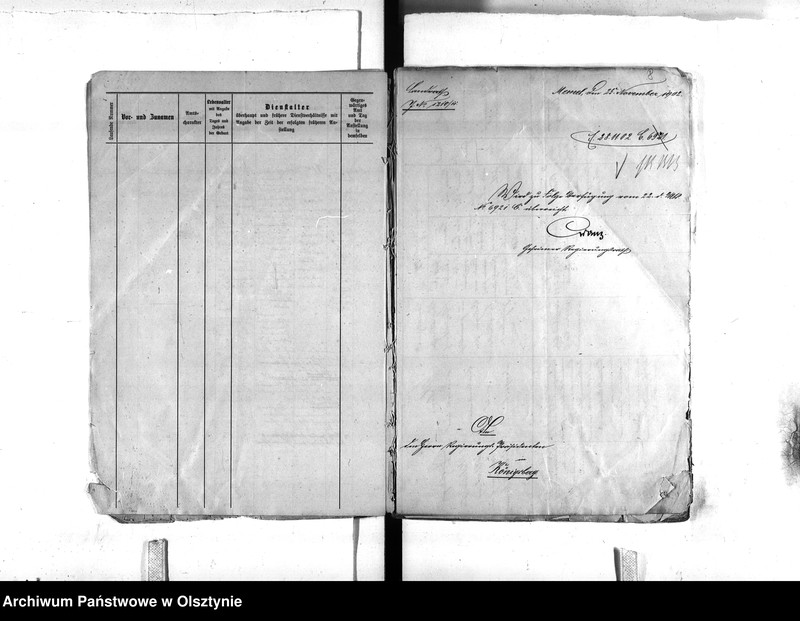 Laufende Nummer
Vor- und Zunamen
Amts-
charakter
Lebensalter
mit Angabe
des
Tages und
Jahres
der Geburt
Dienstalter
überhaupt und frühere Dienstverhältnisse mit
Angabe der Zeit der erfolgten früheren An-
stellung
Gegen-
wärtiges
Amt
und Tag
der
Anstellung
in
demselben
8
Landrath
Memel, den 25. November 1902
Wird zu Folge Verfügung vom 22. d. Mts.
überreicht.
Cranz.
Geheimer Regierungsrath
An
den Herrn Regierungs-Präsidenten
Königsberg
Archiwum Państwowe w Olsztynie